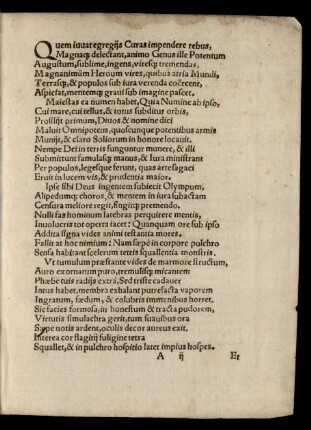 Quem iuuat egregijs Curas impendere rebus,
Magnaq; delectant, animo Genus ille Potentum
Augustum, sublime, ingens, viresq; tremendas,
Magnanimûm Heroum vires, quibus atria Mundi,
Terrasq;, & populos sub iura verenda coërcent,
Aspiciat, mentemq; graui sub imagine pascat.
Maiestas ea numen habet, Quia Numine ab ipso,
Cui mare, cui tellus, & totus subditur orbis,
Prosilijt primum, Diuos & nomine dici
Maluit Omnipotens, quoscunque potentibus armis
Munijt, & claro Soliorum in honore locauit.
Nempe Dei in terris funguntur munere, & illi
Submittunt famulasq; manus, & Iura ministrant
Per populos, legesque ferunt, quas arte sagaci
Eruit in lucem vis, & prudentia maior.
Ipse sibi Deus ingentem subiecit Olympum,
Alipedumq; choros, & mentem in iura subactam
Censura meliore regit, fingitq; premendo.
Nulli fas hominum latebras perquirere mentis,
Inuolucris tot operta iacet: Quanquam ore sub ipso
Addita signa vides animi testantia mores.
Fallit at hoc nimium: Nam sæpè in corpore pulchro
Sensa habitant scelerum tetris squallentia monstris.
Vt tumulum præstante vides de marmore structum,
Auro exornarum puro, tremulisq; micantem
Phœbe tuis radijs extrà, Sed triste cadauer
Intus habet, membra exhalant putrefacta vaporem
Ingratum, fædum, & colubris immanibus horret.
Sic facies formosa, in honestum & tracta pudorem,
Virtutis simulachra gerit, tum suauibus ora
Sæpe notis ardent, oculis decor aureus exit.
Interea cor flagitij fuligine tetra
Squallet, & in pulchro hospitio latet impius hospes.
A ij Et